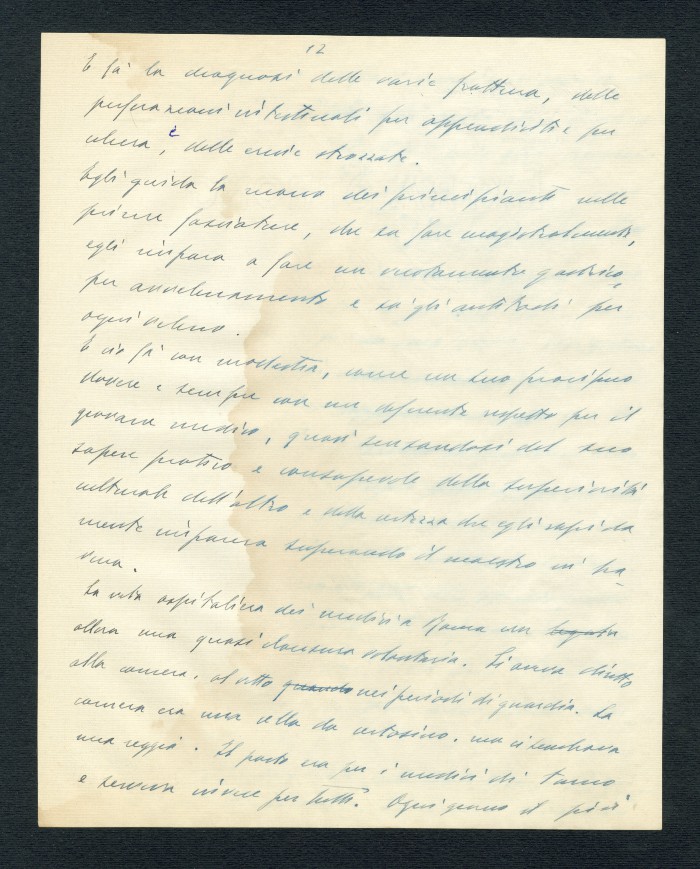 12
E fa la diagnosi delle varie fratture, delle
perforazioni intestinali per appendicite per
ulcera, e delle ernie strozzate.
Egli guida la mano dei principianti nelle
prime fasciature, che sa fare magistralmente,
egli impara a fare un vuotamento gastrico,
per avvelenamento e sa gli antitodi per
ogni veleno.
E ciò fa con modestia, come un suo precipuo
dovere e sempre con un deferente rispetto per il
giovane medico, quasi scusandosi del suo
sapere pratico e consapevole della superiorità
culturale dell'altro e della certezza che egli rapida
mente imparerà superando il maestro in bra-
vura.
La vita ospitaliera dei medici a Roma era legata
allora una quasi clausura volontaria. Si aveva diritto
alla camera, al vitto quando nei periodi di guardia. La
camera era una cella da certosino, ma ci sembrava
una reggia. Il pasto era per i medici di turno
e serviva invece per tutti. Ogni giorno il più